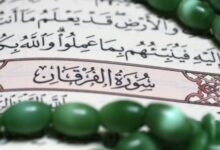 وَٱلْأَرْضِ قَدْ يَعْلَمُ مَآ
إِلَيْهِ فَيُنَبِّئُهُم بِمَا عَمِلُوا۟ وَٱللَّهُ
سُورَةُ الْفُرْقَانِ